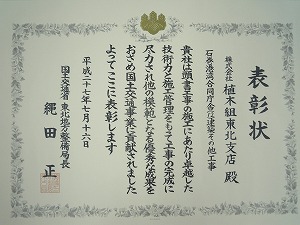 表彰状
株式会社 植木組東北支店 殿
石巻港湾合同庁舎建築その他工事
貴社は頭書工事の施工にあたり卓越した
技術力と施工管理をもって工事の完成に
尽力され他の模範となる優秀な成果を
おさめ国土交通事業に貢献されました
よってここに表彰します
平成二十七年七月十六日
国土交通省 東北地方整備局長
縄田 正